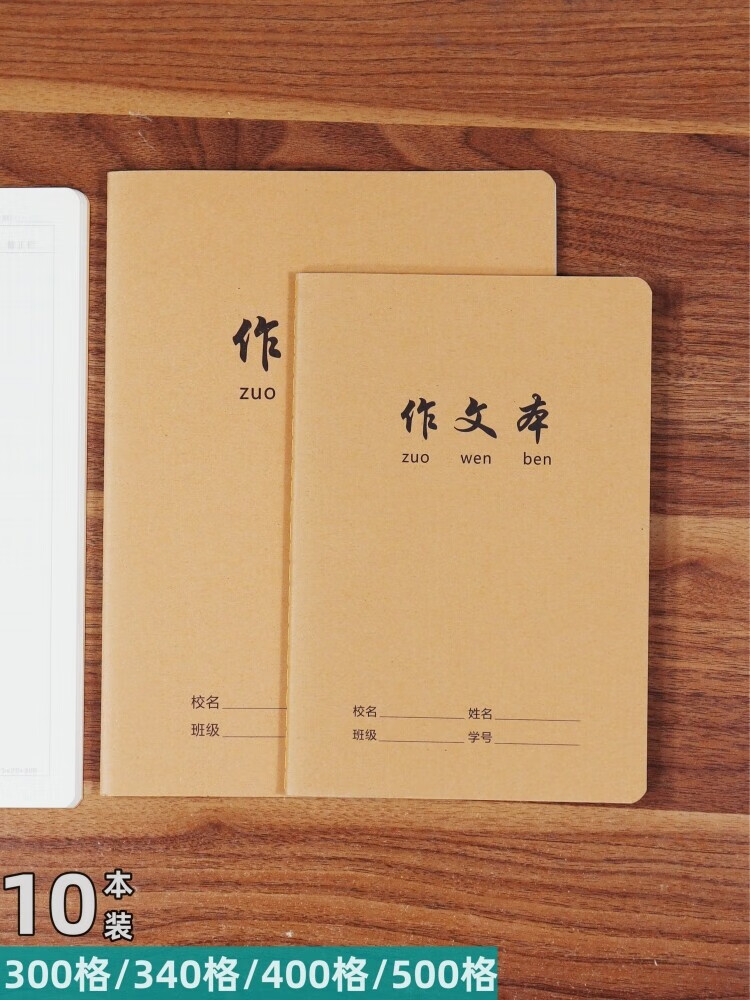 作
zuo
校名
班级
作文本
zuo wen ben
校名 姓名
班级 学号
10本装
300格/340格/400格/500格